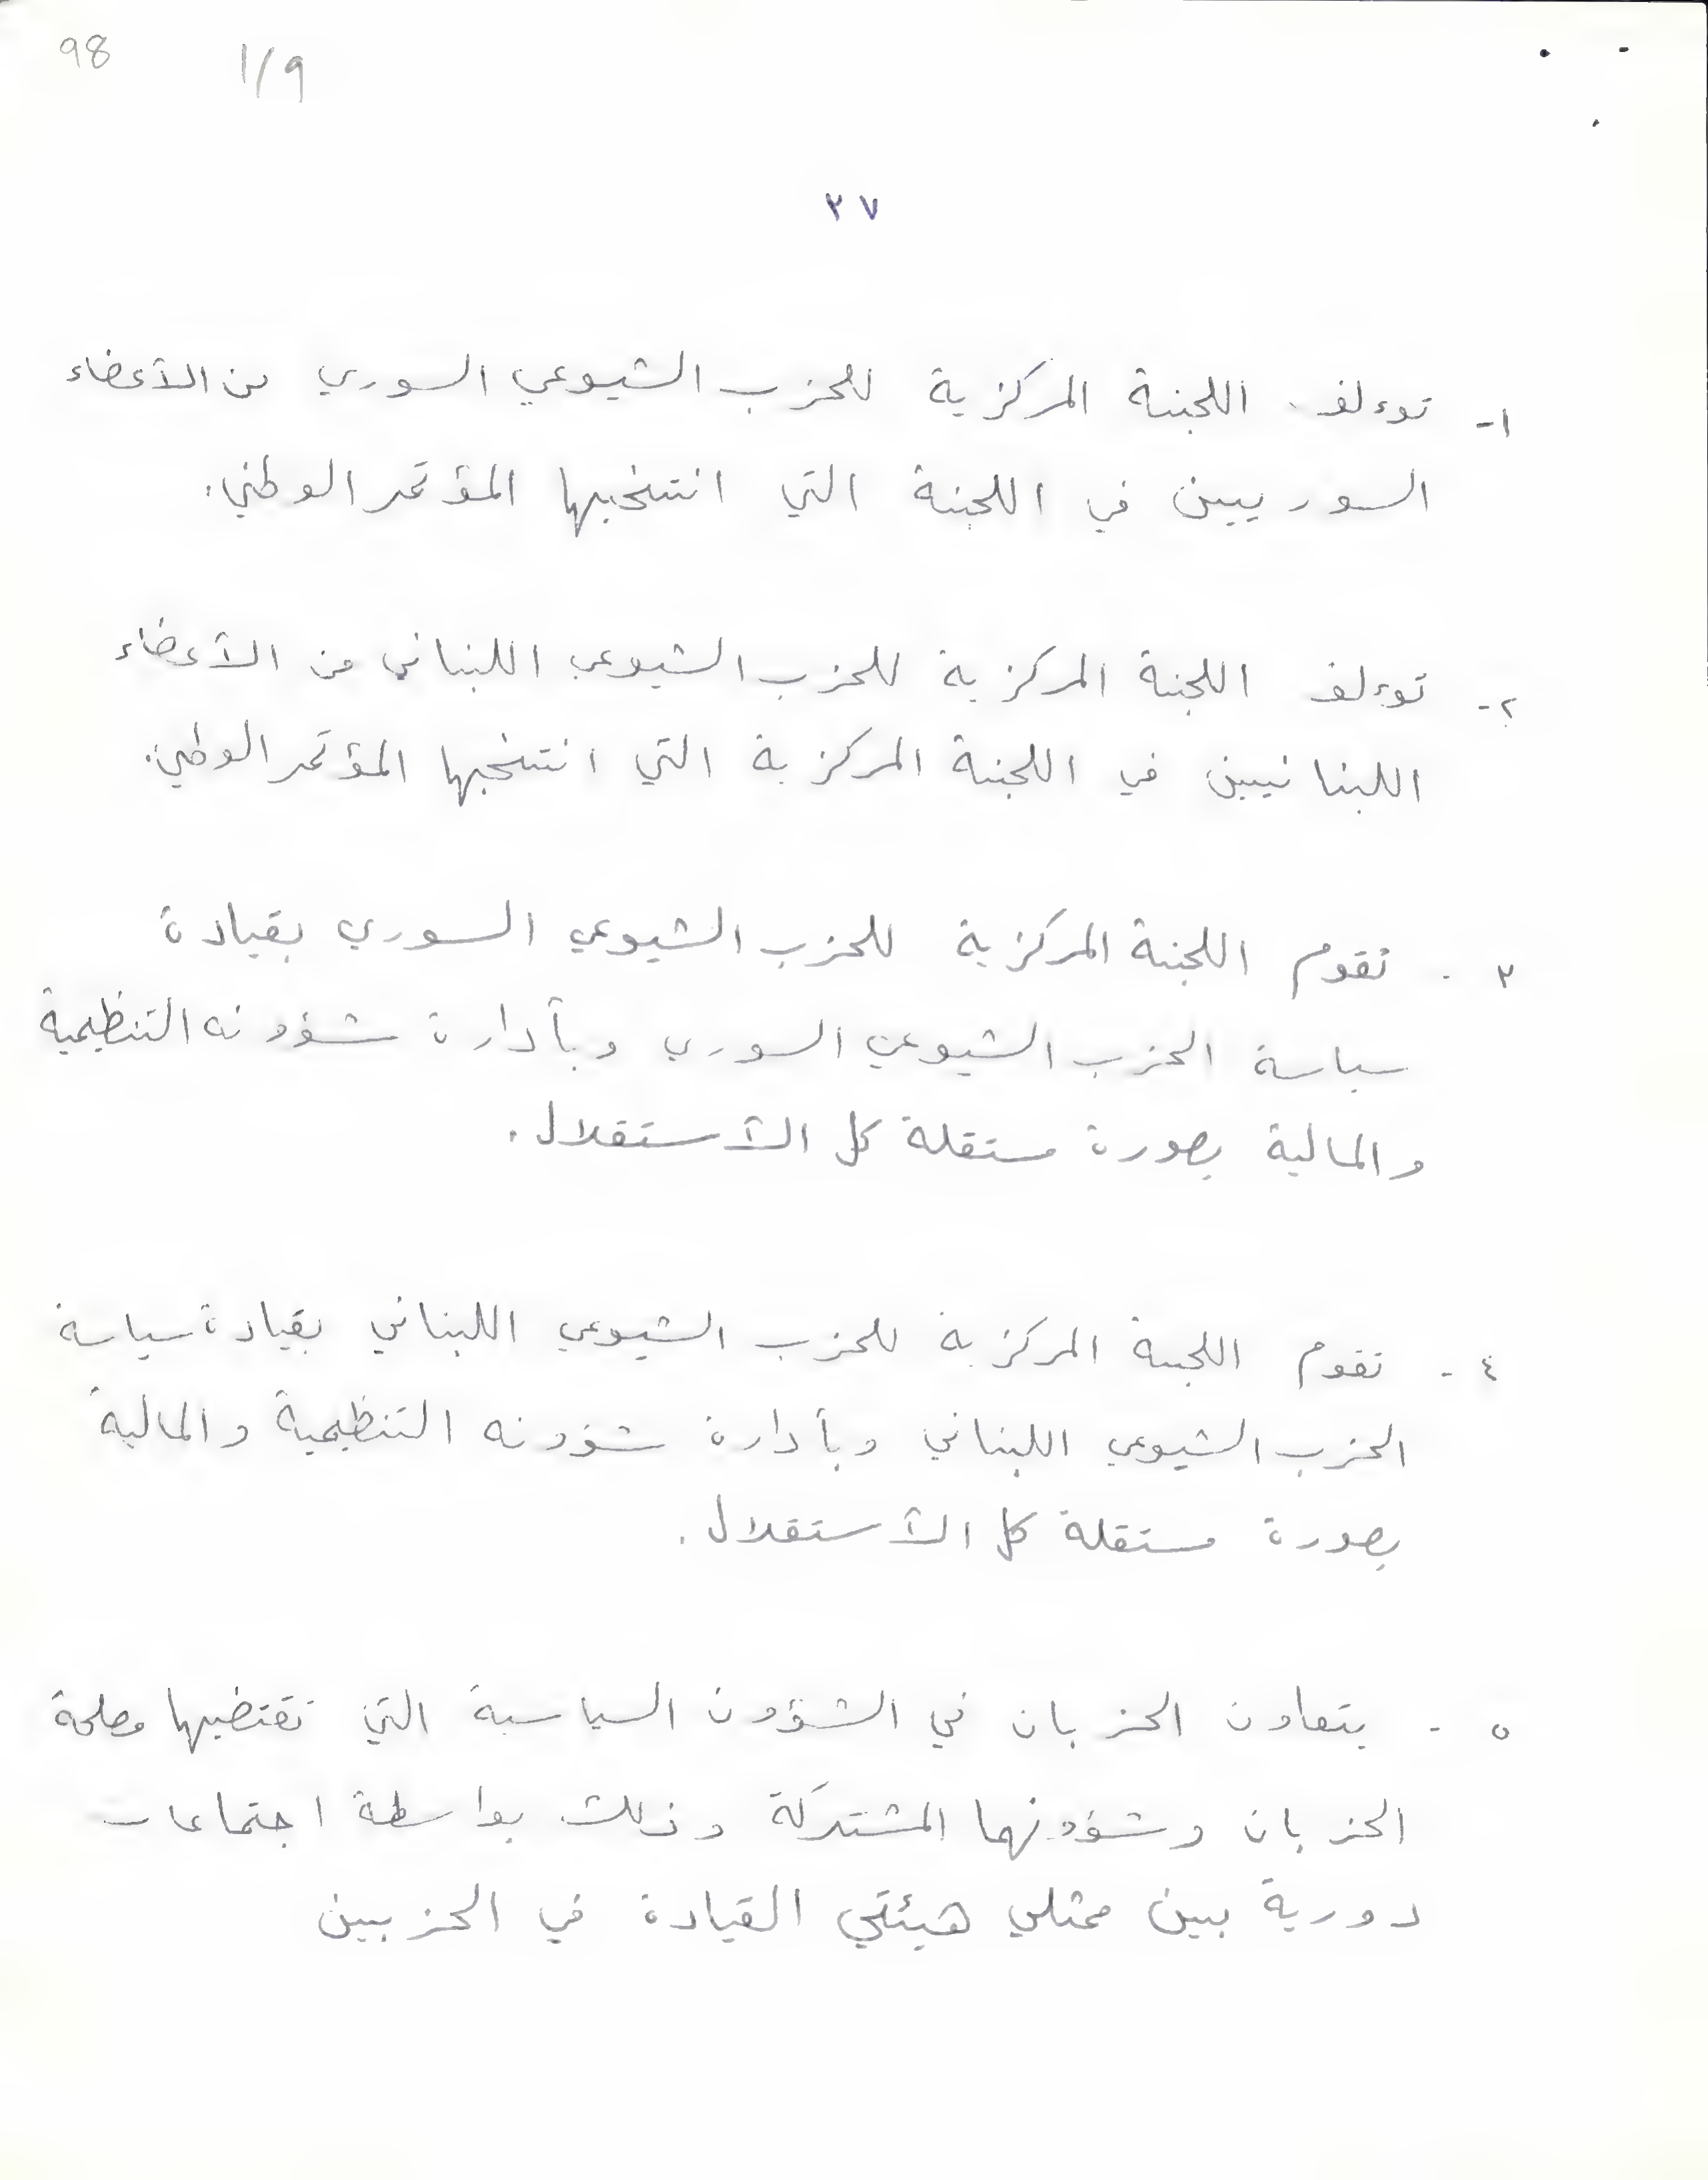 98
1/9
٢٧
١- توءلف اللجنة المركزية للحزب الشيوعي السوري من الأعضاء
السوريين في اللجنة التي انتخبها المؤتمر الوطني.
٢- توءلف اللجنة المركزية للحزب الشيوعي اللبناني من الأعضاء
اللبنانيين في اللجنة المركزية التي انتخبها المؤتمر الوطني.
٣ - تقوم اللجنة المركزية للحزب الشيوعي السوري بقيادة
سياسة الحزب الشيوعي السوري وبأدارة شؤونه التنظيمية
والمالية بصورة مستقلة كل الأستقلال.
٤ - تقوم اللجنة المركزية للحزب الشيوعي اللبناني بقيادة سياسة
الحزب الشيوعي اللبناني وبأدارة شؤونه التنظيمية والمالية
بصورة مستقلة كل الأستقلال.
٥ - يتعاون الحزبان في الشؤون السياسية التي تقتضيها مصلحة
الحزبان وشؤونهما المشتركة وذلك بواسطة اجتماعات
دورية بين ممثلي هيئتي القيادة في الحزبين